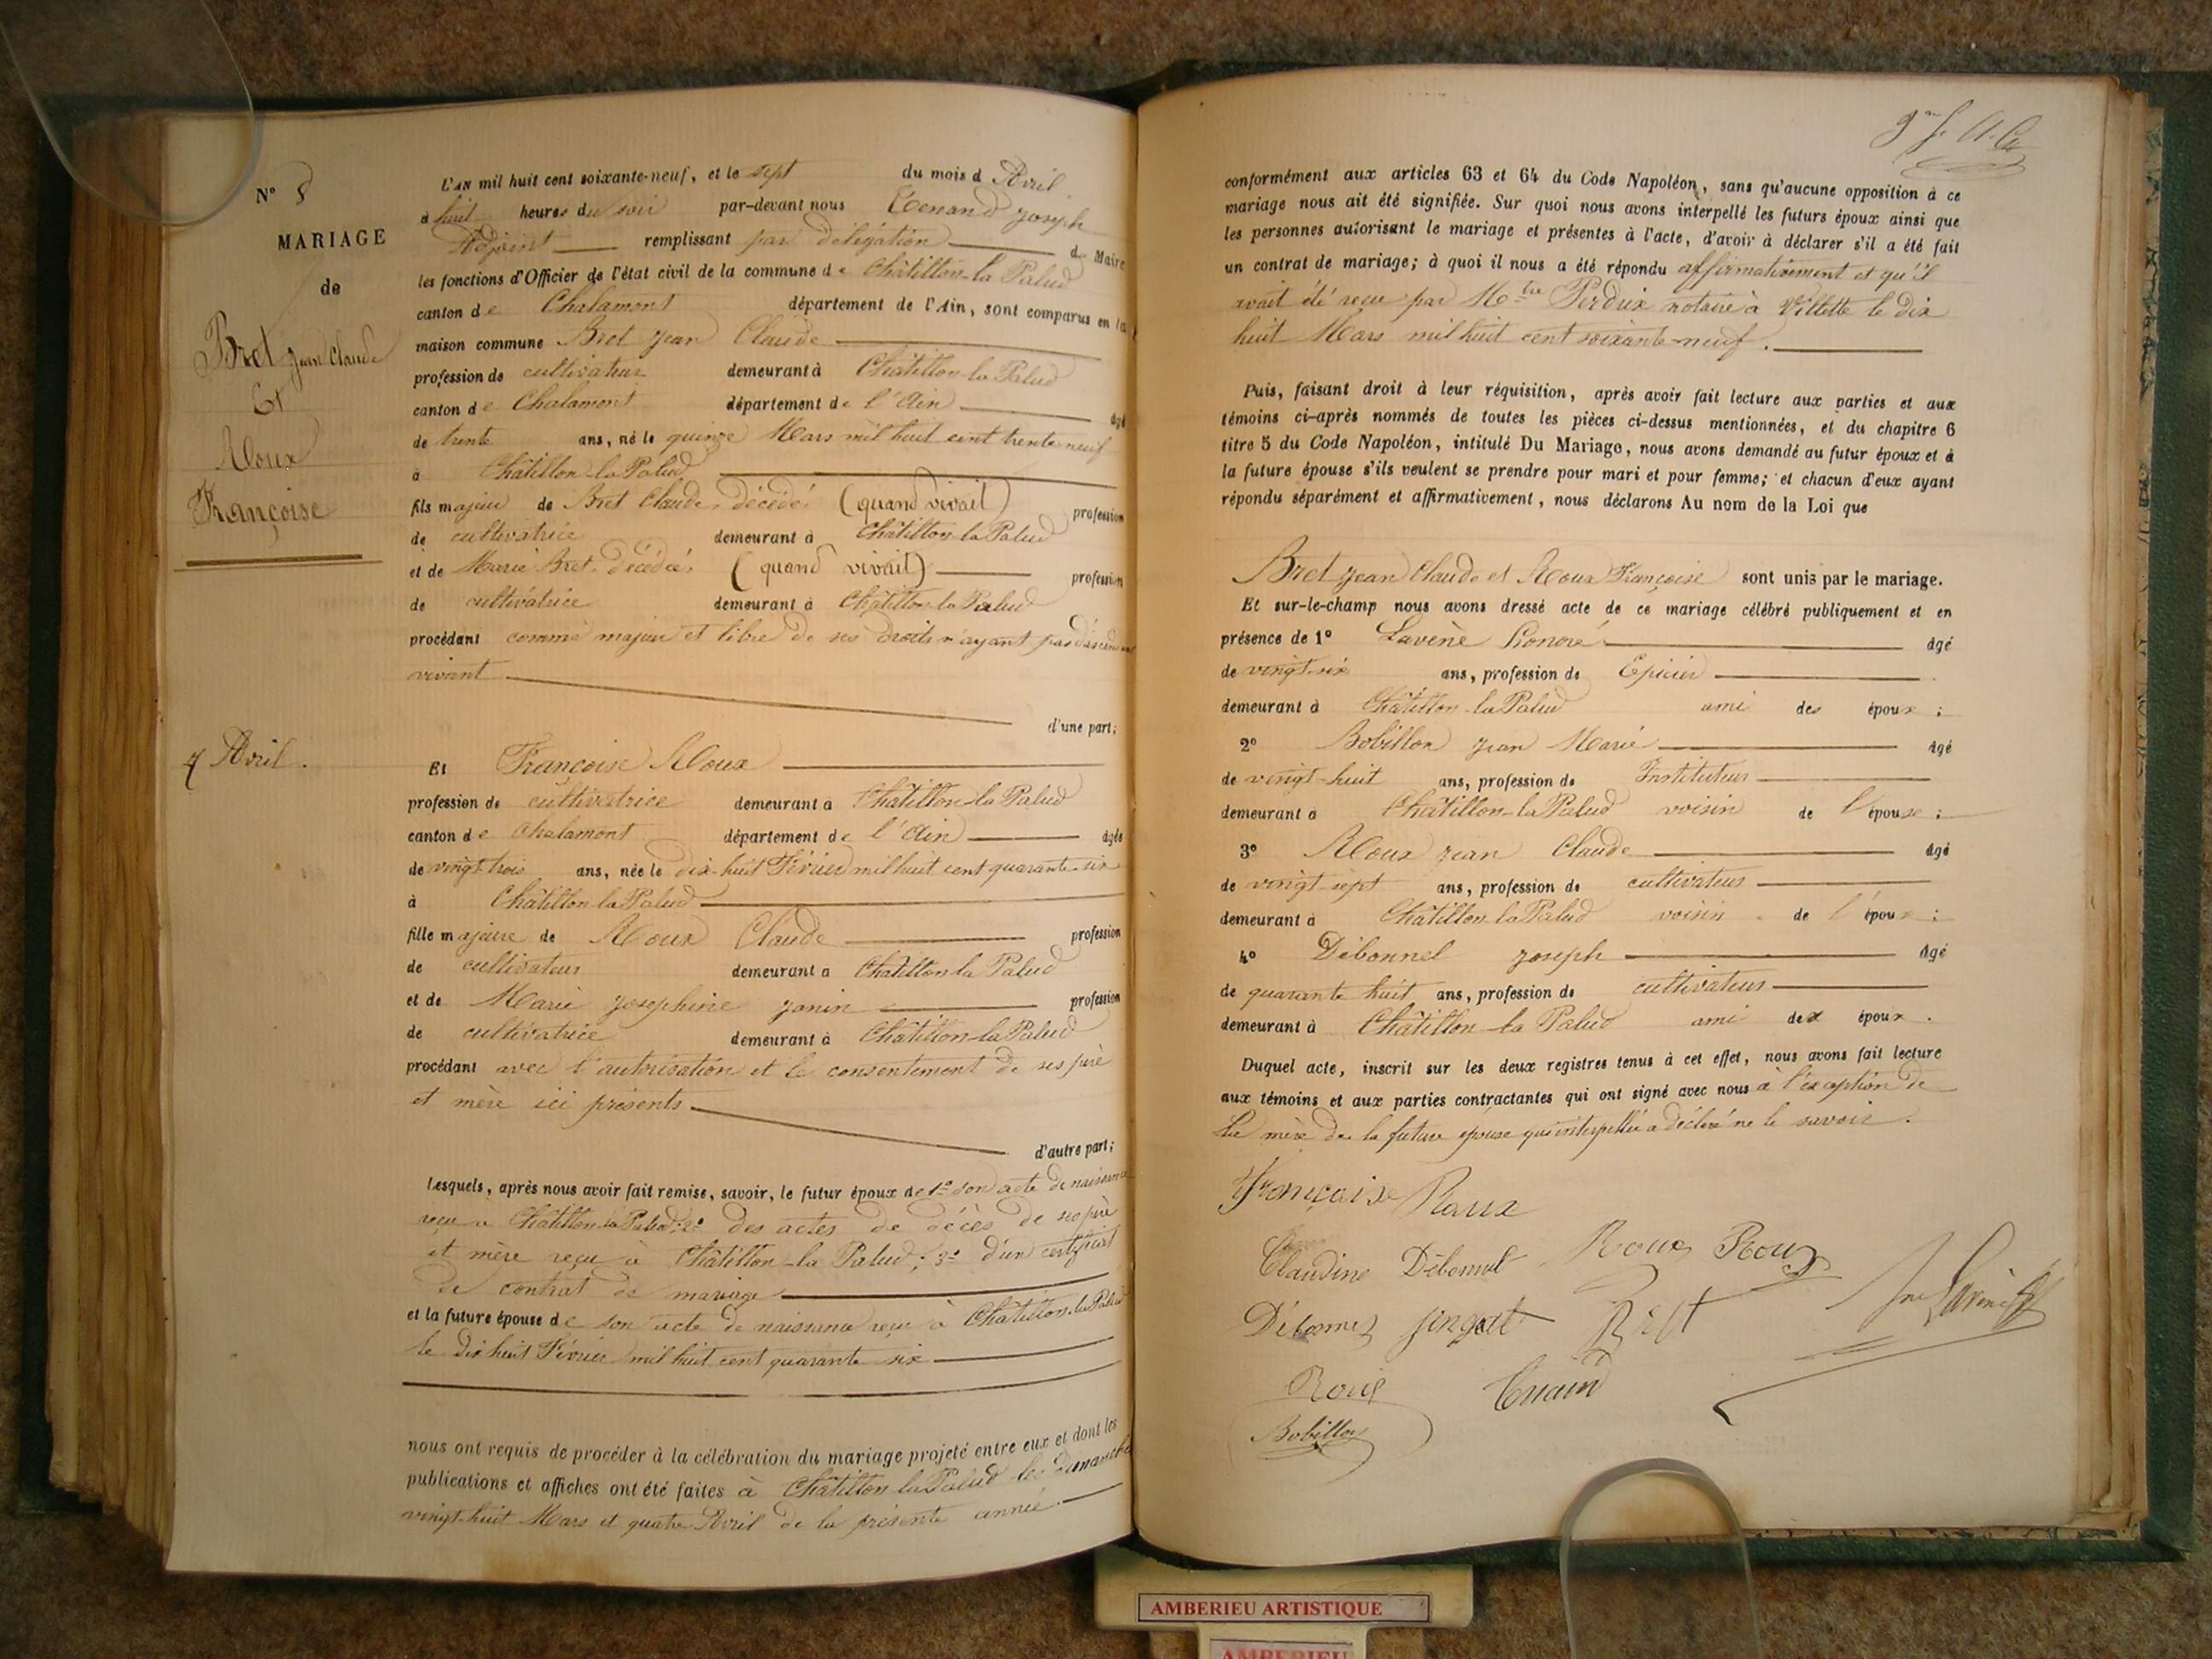 N° 8
MARIAGE
de
Bret Jean Claude
Et
Roux
Françoise
7 Avril.
L'AN mil huit cent soixante-neuf, et le sept du mois d Avril
à huit heures du soir par-devant nous Tenand Joseph
Adjoint remplissant par délégation de Maire
les fonctions d'Officier de l'état civil de la commune de Châtillon-la Palud
canton de Chalamont département de l'Ain, sont comparus en la
maison commune Bret Jean Claude
profession de cultivateur demeurant à Châtillon-la Palud
canton de Chalamont département de l'Ain âgé
de trente ans, né le quinze Mars mil huit cent trente-neuf
à Châtillon-la Palud
fils majeur de Bret Claude, décédé (quand vivait) profession
de cultivatrice demeurant à Châtillon-la Palud
et de Marie Bret, décédée, (quand vivait) profession
de cultivatrice demeurant à Châtillon-la Palud
procédant comme majeur et libre de ses droits n'ayant pas d'ascendant
vivant
d'une part;
Et Françoise Roux
profession de cultivatrice demeurant à Châtillon la Palud
canton de Chalamont département de l'Ain âgée
de vingt-trois ans, née le dix-huit Février mil huit cent quarante-six
à Châtillon-la Palud
fille majeure de Roux Claude profession
de cultivateur demeurant à Châtillon la Palud
et de Marie Josephine Janin profession
de cultivatrice demeurant à Châtillon-la Palud
procédant avec l'autorisation et le consentement de ses père
et mère ici présents
d'autre part;
Lesquels, après nous avoir fait remise, savoir, le futur époux de 1° son acte de naissance
reçu à Châtillon-la Palud; 2° des actes de décès de ses père
et mère reçu à Châtillon-la Palud; 3° d'un certificat
de contrat de mariage
et la future épouse de son acte de naissance reçu à Châtillon-la Palud
le dix huit Février mil huit cent quarante six
nous ont requis de procéder à la célébration du mariage projeté entre eux et dont les
publications et affiches ont été faites à Châtillon la Palud les dimanches
vingt-huit Mars et quatre Avril de la présente année.
conformément aux articles 63 et 64 du Code Napoléon, sans qu'aucune opposition à ce
mariage nous ait été signifiée. Sur quoi nous avons interpellé les futurs époux ainsi que
les personnes autorisant le mariage et présentes à l'acte, d'avoir à déclarer s'il a été fait
un contrat de mariage; à quoi il nous a été répondu affirmativement et qu'il
avait été reçu par Mtre Perdrix notaire à Villette le dix
huit Mars mil huit cent soixante-neuf.
Puis, faisant droit à leur réquisition, après avoir fait lecture aux parties et aux
témoins ci-après nommés de toutes les pièces ci-dessus mentionnées, et du chapitre 6
titre 5 du Code Napoléon, intitulé Du Mariage, nous avons demandé au futur époux et à
la future épouse s'ils veulent se prendre pour mari et pour femme; et chacun d'eux ayant
répondu séparément et affirmativement, nous déclarons Au nom de la Loi que
Bret Jean Claude et Roux Françoise sont unis par le mariage.
Et sur-le-champ nous avons dressé acte de ce mariage célébré publiquement et en
présence de 1° Lavène Honoré âgé
de vingt-six ans, profession de Epicier
demeurant à Châtillon-la Palud ami des époux;
2° Bobillon Jean Marie âgé
de vingt-huit ans, profession de Instituteur
demeurant à Châtillon-la Palud voisin de l'épouse;
3° Roux Jean Claude âgé
de vingt-sept ans, profession de cultivateur
demeurant à Châtillon-la Palud voisin de l'époux;
4° Débonnel Joseph âgé
de quarante huit ans, profession de cultivateur
demeurant à Châtillon-la Palud ami des époux.
Duquel acte, inscrit sur les deux registres tenus à cet effet, nous avons fait lecture
aux témoins et aux parties contractantes qui ont signé avec nous à l'exception de
La mère de la future épouse qui interpellée a déclaré ne le savoir.
Françoise Roux
Claudine Débonnel Roux Roux
Bret
Roux
Bobillon
AMBERIEU ARTISTIQUE
AMBERIEU